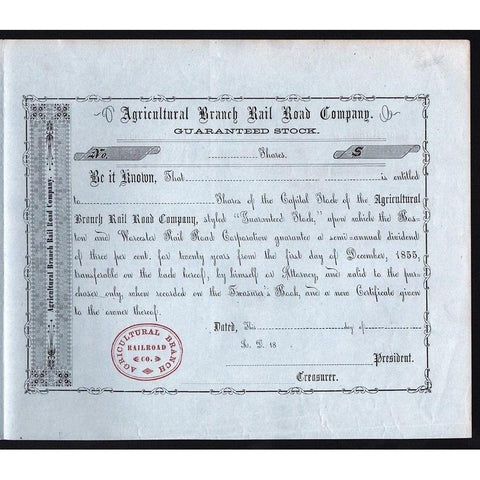 Agricultural Branch Rail Road Company.
GUARANTEED STOCK.
No. Shares. $
Be it Known, That is entitled
to Shares of the Capital Stock of the Agricultural
Branch Rail Road Company, styled "Guaranteed Stock," upon which the Bos-
ton and Worcester Rail Road Corporation guarantee a semi-annual dividend
of three per cent. for twenty years from the first day of December, 1855,
transferable on the back hereof, by himself or Attorney, and valid to the pur-
chaser only, when recorded on the Treasurer's Book, and a new Certificate given
to the owner thereof.
Dated, This day of
A. D. 18
President.
Treasurer.
Agricultural Branch Rail Road Company.
AGRICULTURAL BRANCH
RAILROAD
CO.